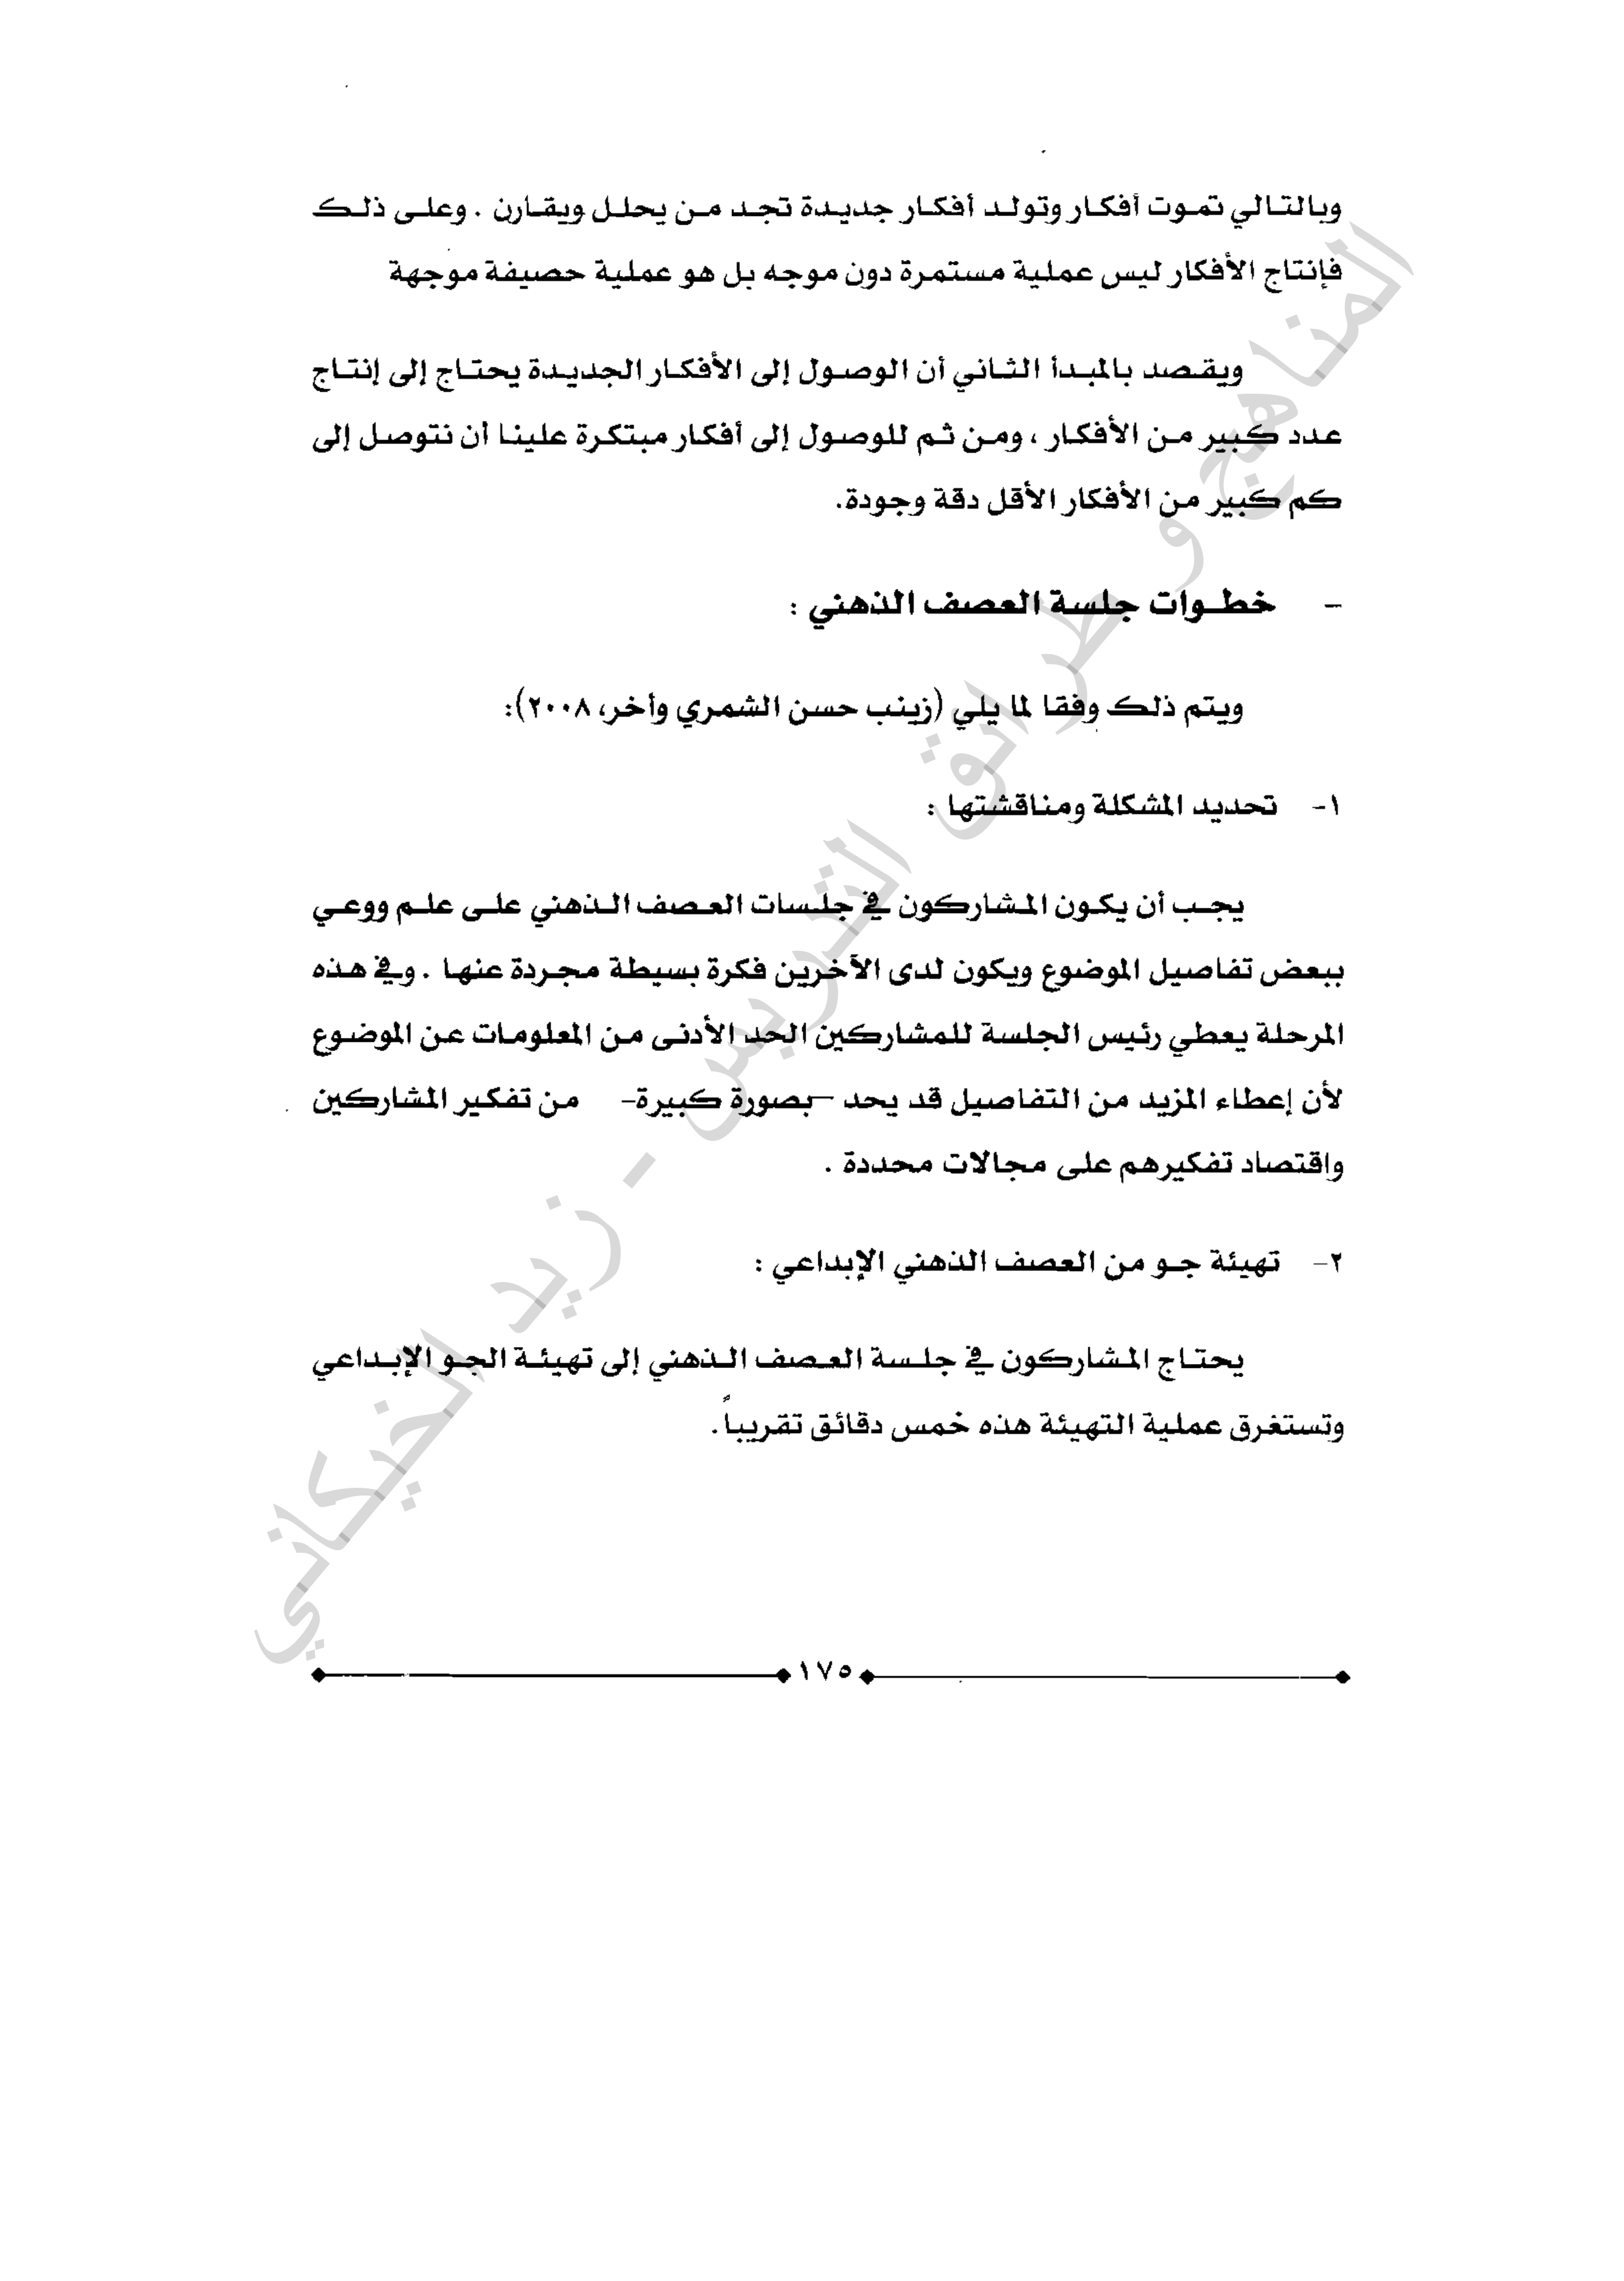 وبالتالي تموت أفكار وتولد أفكار جديدة تجد من يحلل ويقارن . وعلى ذلك
فإنتاج الأفكار ليس عملية مستمرة دون موجه بل هو عملية حصيفة موجهة
ويقصد بالمبدأ الثاني أن الوصول إلى الأفكار الجديدة يحتاج إلى إنتاج
عدد كبير من الأفكار ، ومن ثم للوصول إلى أفكار مبتكرة علينا أن نتوصل إلى
كم كبير من الأفكار الأقل دقة وجودة.
- خطوات جلسة العصف الذهني :
ويتم ذلك وفقا لما يلي (زينب حسن الشمري وأخر، ٢٠٠٨):
١- تحديد المشكلة ومناقشتها :
يجب أن يكون المشاركون في جلسات العصف الذهني على علم ووعي
ببعض تفاصيل الموضوع ويكون لدى الآخرين فكرة بسيطة مجردة عنها . وفي هذه
المرحلة يعطي رئيس الجلسة للمشاركين الحد الأدنى من المعلومات عن الموضوع
لأن إعطاء المزيد من التفاصيل قد يحد -بصورة كبيرة- من تفكير المشاركين
واقتصاد تفكيرهم على مجالات محددة .
٢- تهيئة جو من العصف الذهني الإبداعي :
يحتاج المشاركون في جلسة العصف الذهني إلى تهيئة الجو الإبداعي
وتستغرق عملية التهيئة هذه خمس دقائق تقريباً.
١٧٥
المناهج و طرائق التدريس - زيد الخيكاني